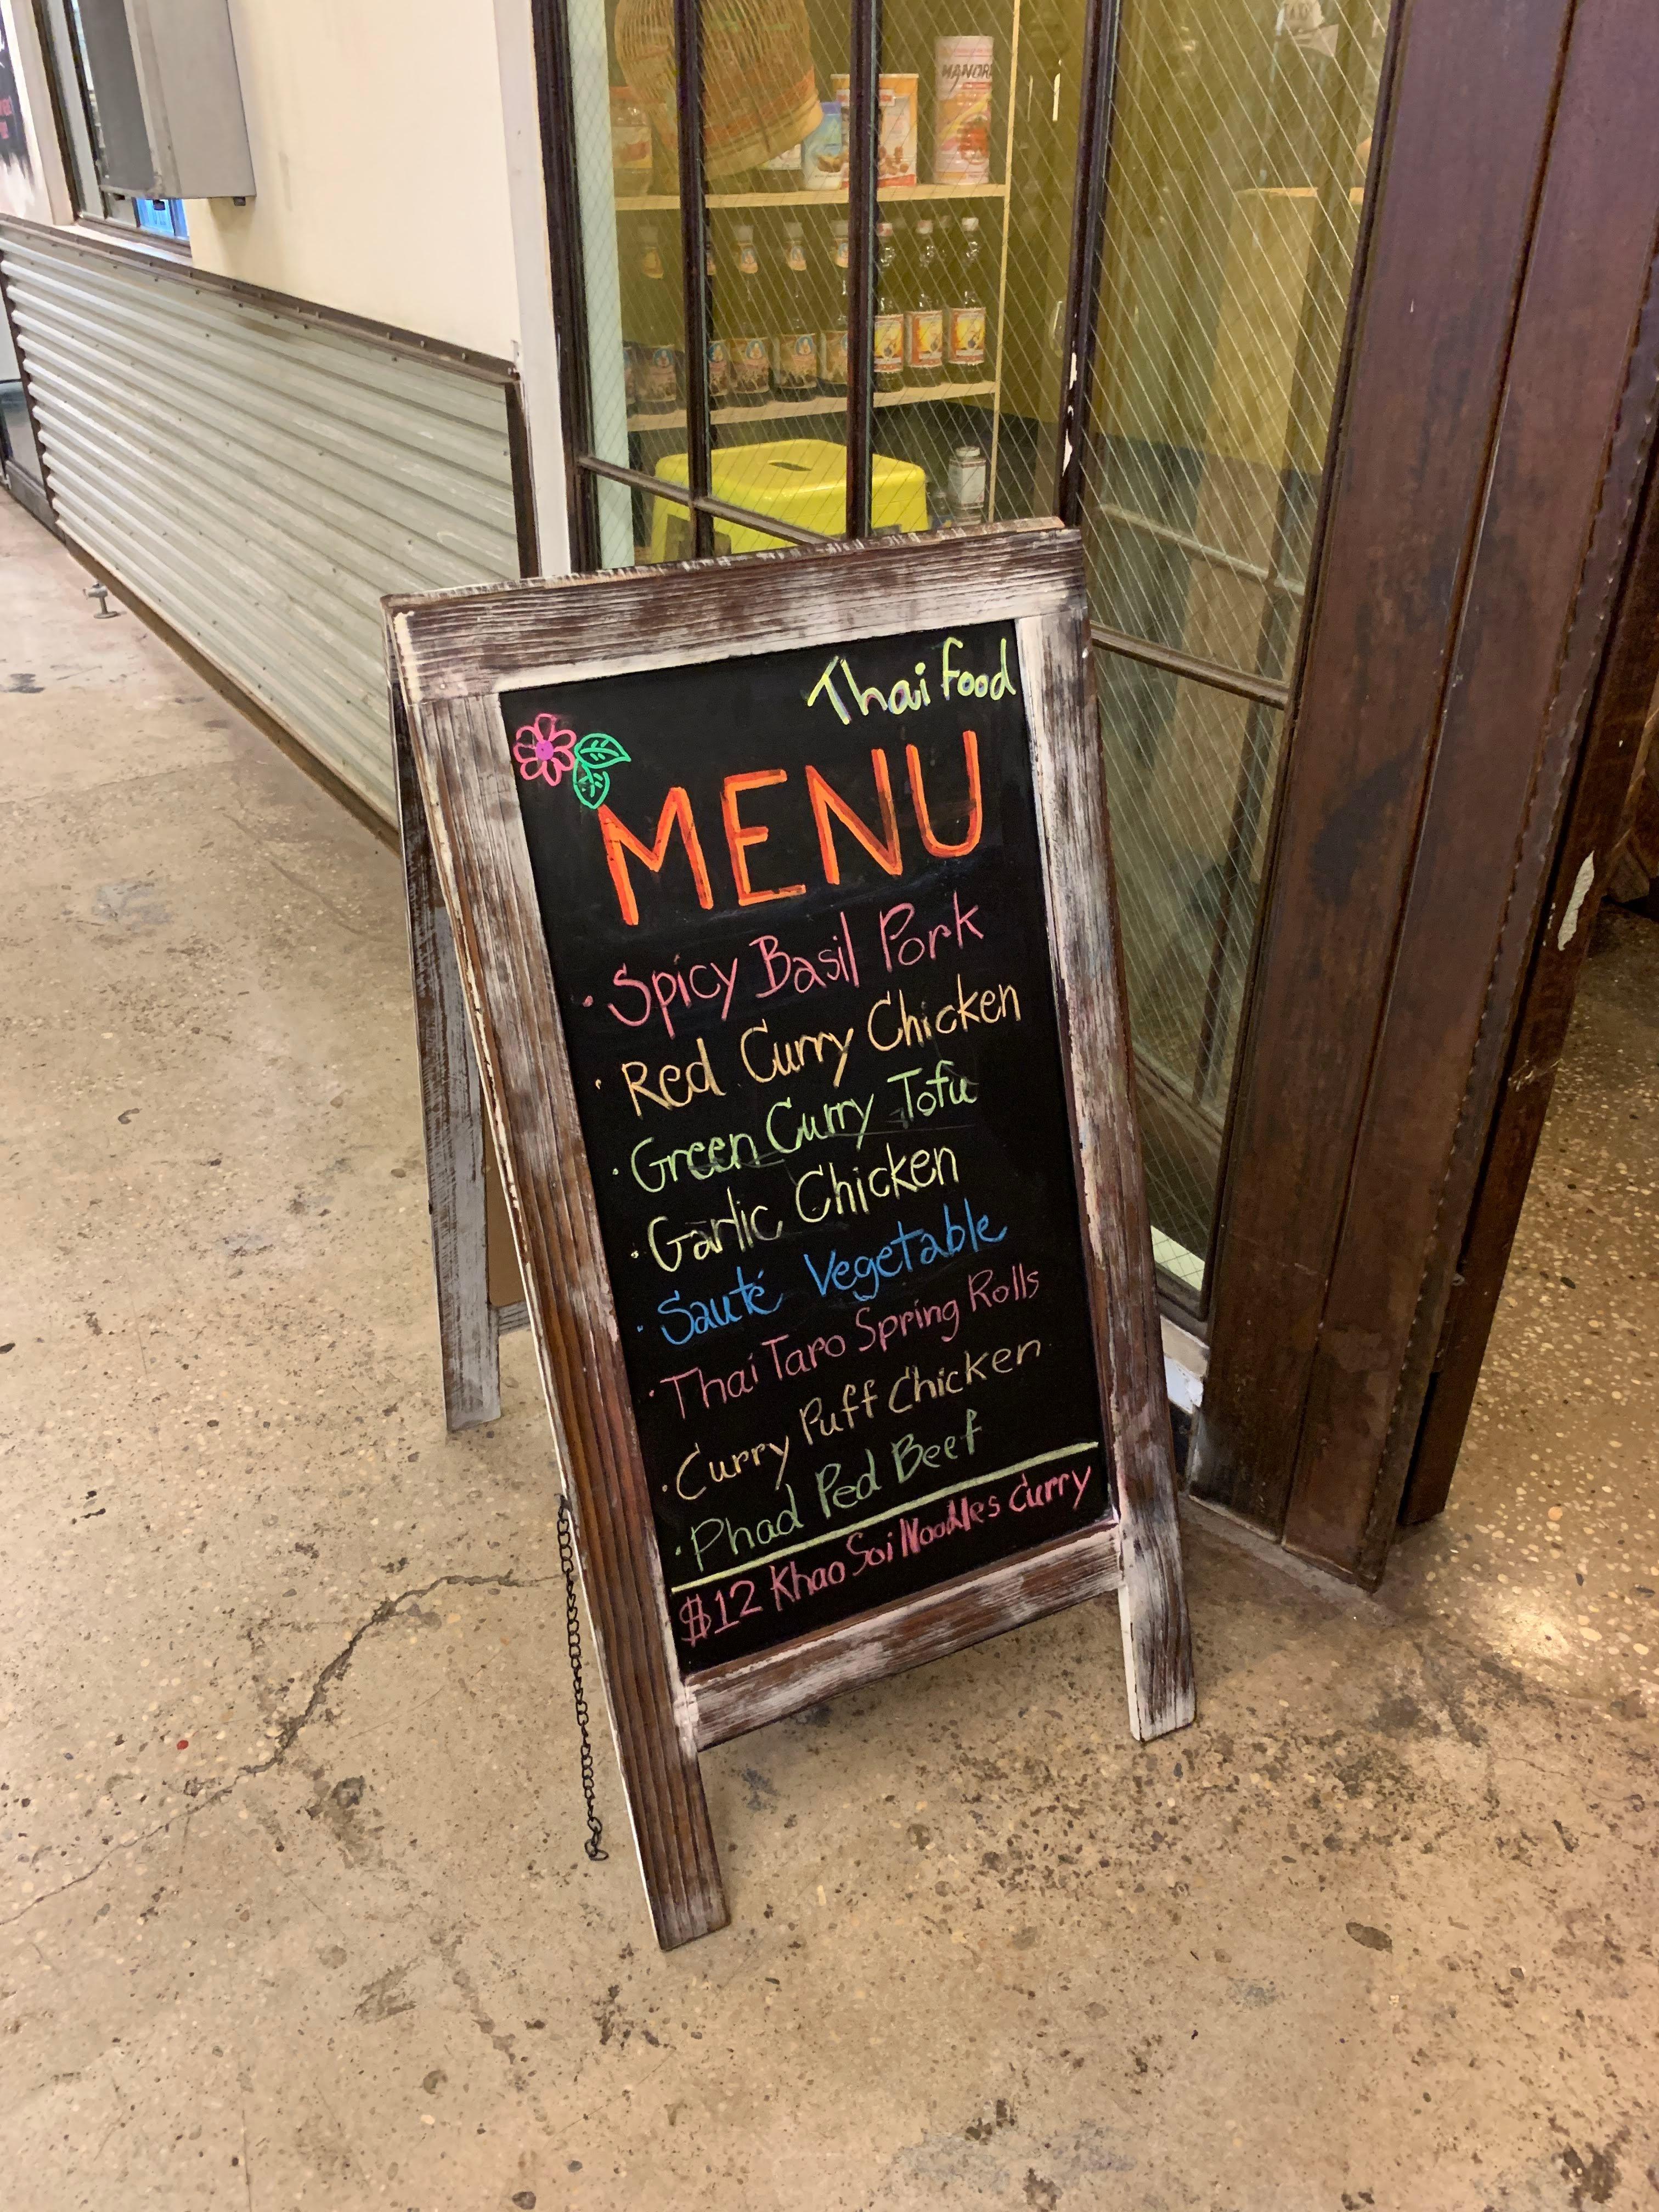 MANORA
Thai Food
MENU
· Spicy Basil Pork
· Red Curry Chicken
· Green Curry Tofu
· Garlic Chicken
· Sauté Vegetable
· Thai Taro Spring Rolls
· Curry Puff Chicken
· Phad Ped Beef
$12 Khao Soi Noodles Curry